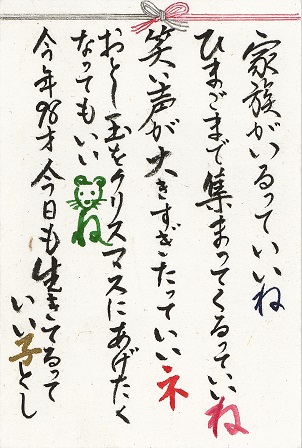 家族がいるっていいね
ひまごまで集まってくるっていいね
笑い声が大きすぎたっていいネ
おとし玉をクリスマスにあげたく
なってもいいね
今年98才今日も生きてるって
いい子とし